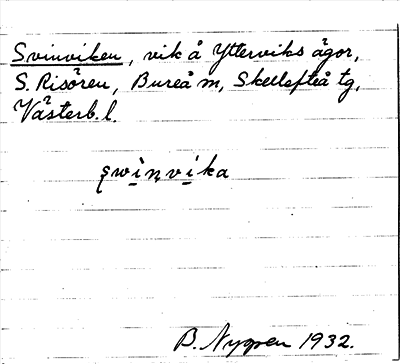 Svinviken, vik å Ytterviks ägor,
S. Risören, Bureå m, Skellefteå tg,
Västerb. l.
swinvika
B. Nygren 1932.